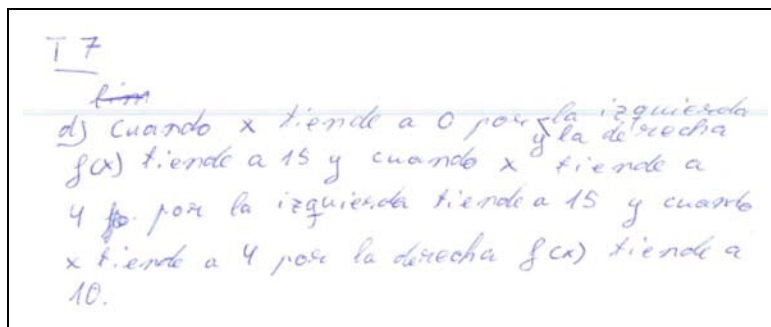 T 7
lim
d) Cuando x tiende a 0 por la izquierda
y la derecha
f(x) tiende a 15 y cuando x tiende a
4 por la izquierda tiende a 15 y cuando
x tiende a 4 por la derecha f(x) tiende a
10.